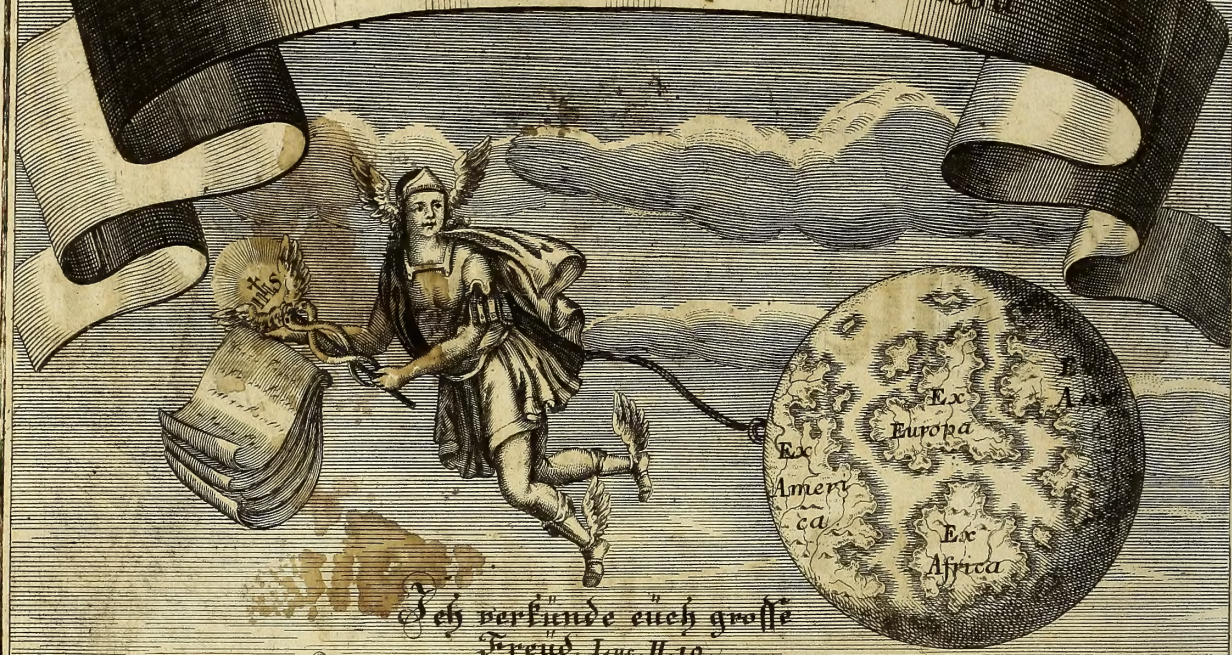 IHS
Ex
Europa
Ex
Ameri
ca
Ex
Africa
Ich verkünde eüch grosse
Freüd. Luc. II. 10